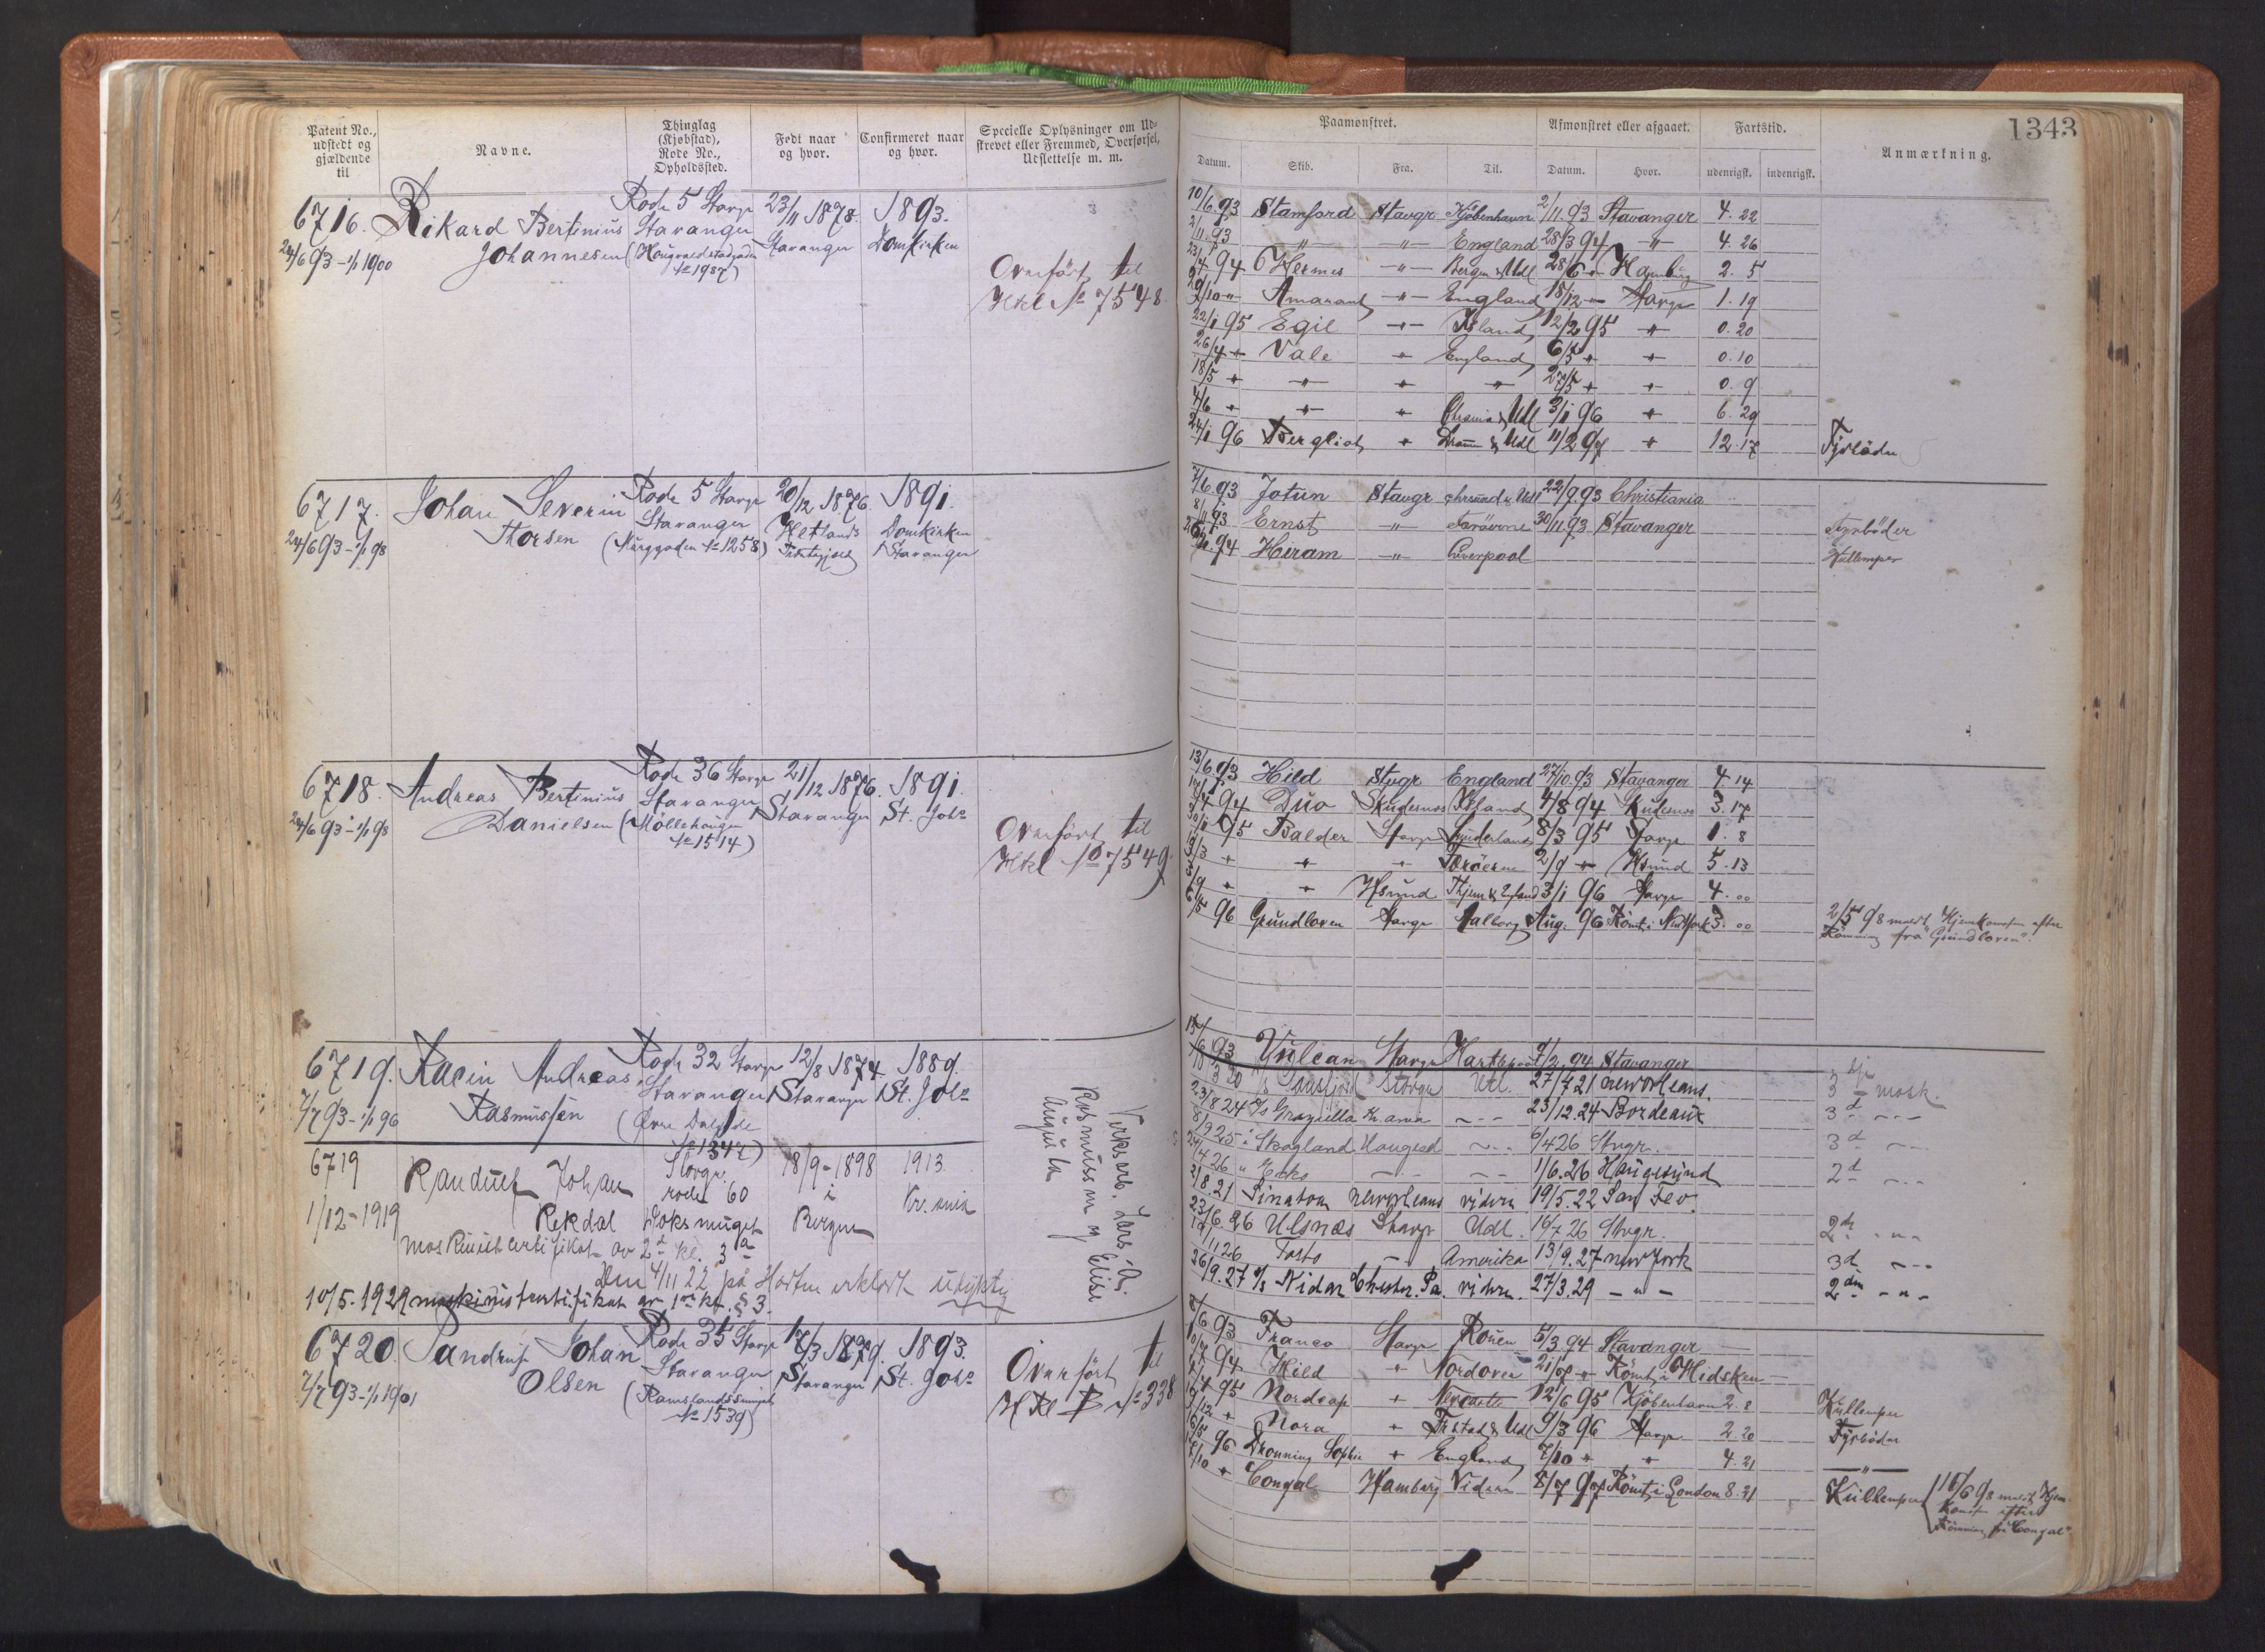 Patent No., udstedt og gjældende til
Navne.
Thinglag (Kjøbstad), Rode No., Opholdssted.
Født naar og hvor.
Confirmeret naar og hvor.
Specielle Oplysninger om Udstrevet eller Fremmed, Overførsel, Udslettelse m. m.
6716. Rikard Bertinius Rode 5 Stavgr 23/11 1878. 1893.
24/6 93 - 1/1 1900 Johannesen Stavanger Stavanger Domkirken
(Haugvaldstadgaden No 1987)
Overført til
Hkl No 7548
6717. Johan Severin Rode 5 Stavgr 20/12 1876. 1891.
24/6 93 - 1/1 98 Thorsen Stavanger Hetlands Domkirken
(Murggaden No 1258) Stavanger
6718. Andreas Bertinius Rode 36 Stavgr 21/12 1876. 1891.
24/6 93 - 1/1 98 Danielsen Stavanger Stavanger St. Johs
(Møllehaugen No 1514)
Overført til
Hkl No 7549
6719. Andreas Rode 32 Stavgr 12/8 1874. 1889.
7/7 93 - 1/1 96 Rasmussen Stavanger Stavanger St. Johs
(Øvre Dalgade
No 1347)
Verksarb. Lars A.
Rasmussen og Elise
Augusta
6719 Randulf Johan Stavgr. 18/9-1898 1913
1/12-1919 Rekdal rode 60 i Kr.ania
Bergen
Maskinistcertifikat av 2d kl. 3a
Den 4/11 22 på Horten erklært udyktig
10/5-1929 maskinistcertifikat av 1ste kl. § 3.
6720. Johan Rode 35 Stavgr 17/3 1879. 1893.
7/7 93 - 1/1 1901 Olsen Stavanger Stavanger St. Johs
No 1539)
Overført til
H Kl B No 338
1343
Paamønstret.
Afmønstret eller afgaaet.
Fartstid.
Anmærkning.
Datum. Skib. Fra. Til. Datum. Hvor. udenrigsk. indenrigsk.
10/6.93 Stamford Stavgr Kjøbenhavn 2/11.93 Stavanger 4. 22
2/11.93 " " England 28/3 94 " 4. 26
94 Hermes " Bergen & Udl 28/6 " Hamburg 2. 5
29/10 " Amarant " England 18/12 " Stavgr 1. 19
22/1 95 Egil " Island 12/2 95 " 0. 20
26/4 " Vale " England 6/5 " " 0. 10
18/5 " " " " 27/5 " " 0. 9
4/6 " " " Chrania & Udl 3/1 96 " 6. 29
24/1 96 Bergliot " Dram & Udl 11/2 97 " 12. 17 Fyrbøder
7/6.93 Jotun Stavgr Chrsund & Udl 22/9.93 Christiania
8/11 93 Ernst " Færøerne 30/11.93 Stavanger Fyrbøder
94 Hiram " Liverpool Kullemper
13/6.93 Hild Stvgr England 27/10.93 Stavanger 4. 14
94 Duo Skudesnes Island 4/8 94 Skudesnes 3. 17
30/1 95 Balder Stavgr Sunderland 8/3 95 Stavgr 1. 8
" " " Færøerne 2/9 " Hsund 5. 13
" " Hsund Thjem & Island 3/1 96 Stavgr 4. 00
6/5 96 Grundloven Stavgr Aalborg Aug. 96 Rømt i New York 3. 00
2/5 98 meldt Hjemkomsten efter Rømning fra "Grundloven".
15/6 93 Vulcan Stavgr Hartlepool 94 Stavanger
Stavgr Utl. 27/7 21 New Orleans. 3 mask.
23/8 24 Graziella Kr.ania 23/12.24 Bordeaux 3d
25 Skogland Haugesd 6/4 26 Stvgr. 3d
24/4 26 Ecko 1/6.26 Haugesund 2d
21/8.21 Sinaloa New Orleans videre 19/5.22 San Feo.
23/6.26 Ulsnæs Stavgr Udl. 16/7 26 Stvgr. 2den
11 26 Tosto Amerika 13/9.27 New York 3d
26/9.27 Nidar Chester. Pa. videre. 27/3.29 2den
8/6 93 Franco Stavgr Rouen 5/3 94 Stavanger
94 Hild " Nordover 21/8 " Rømt i
95 Nordcap " Newcastle 12/6 95 Kjøbenhavn 2. 8 Kullemper
12 " Nora " Frstad & Udl 9/3 96 Stavgr 2. 20 Fyrbøder
96 Dronning Sophie " England 7/10 " " 4. 21 "
10 " Congal Hamburg Videre 8/7 97 Rømt i London 8. 21 Kullemper
16/6 98 meldt Hjemkomsten efter Rømning fra "Congal"